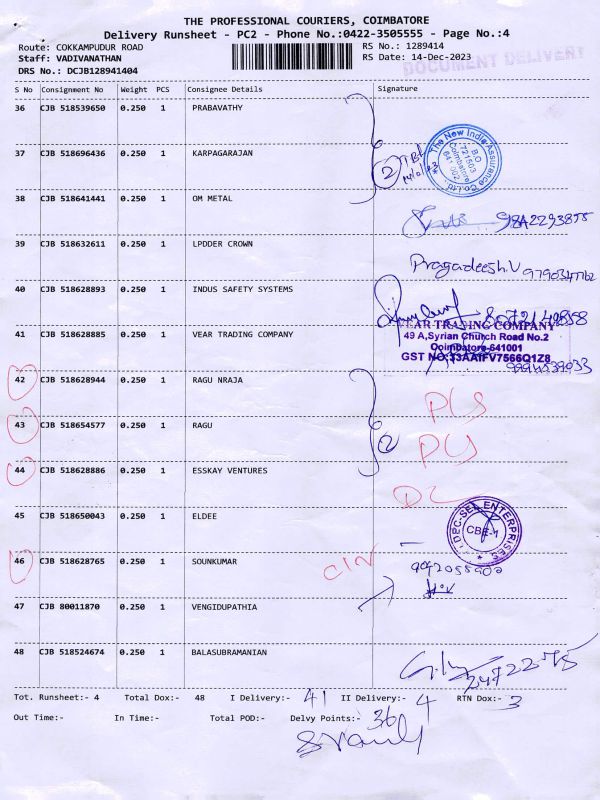 THE PROFESSIONAL COURIERS, COIMBATORE
Delivery Runsheet - PC2 - Phone No.:0422-3505555 - Page No.:4
Route: COKKAMPUDUR ROAD
RS No.: 1289414
Staff: VADIVANATHAN
RS Date: 14-Dec-2023
DOCUMENT DELIVERY
DRS No.: DCJB128941404
S No Consignment No Weight PCS Consignee Details Signature
36 CJB 518539650 0.250 1 PRABAVATHY
37 CJB 518696436 0.250 1 KARPAGARAJAN
2
The New India Assurance Co. Ltd.
B.O
721503
Coimbatore
641 002
38 CJB 518641441 0.250 1 OM METAL
39 CJB 518632611 0.250 1 LPDDER CROWN
Pragadeesh.V
40 CJB 518628893 0.250 1 INDUS SAFETY SYSTEMS
41 CJB 518628885 0.250 1 VEAR TRADING COMPANY
VEAR TRADING COMPANY
49 A,Syrian Church Road No.2
Coimbatore-641001
GST NO:33AAIFV7566Q1Z8
42 CJB 518628944 0.250 1 RAGU NRAJA
43 CJB 518654577 0.250 1 RAGU
2
44 CJB 518628886 0.250 1 ESSKAY VENTURES
45 CJB 518650043 0.250 1 ELDEE
DEC-SEL ENTERPRISES
CBE-1
46 CJB 518628765 0.250 1 SOUNKUMAR
47 CJB 80011870 0.250 1 VENGIDUPATHIA
48 CJB 518524674 0.250 1 BALASUBRAMANIAN
Tot. Runsheet:- 4 Total Dox:- 48 I Delivery:- 41 II Delivery:- 4 RTN Dox:- 3
Out Time:- In Time:- Total POD:- Delvy Points:- 36